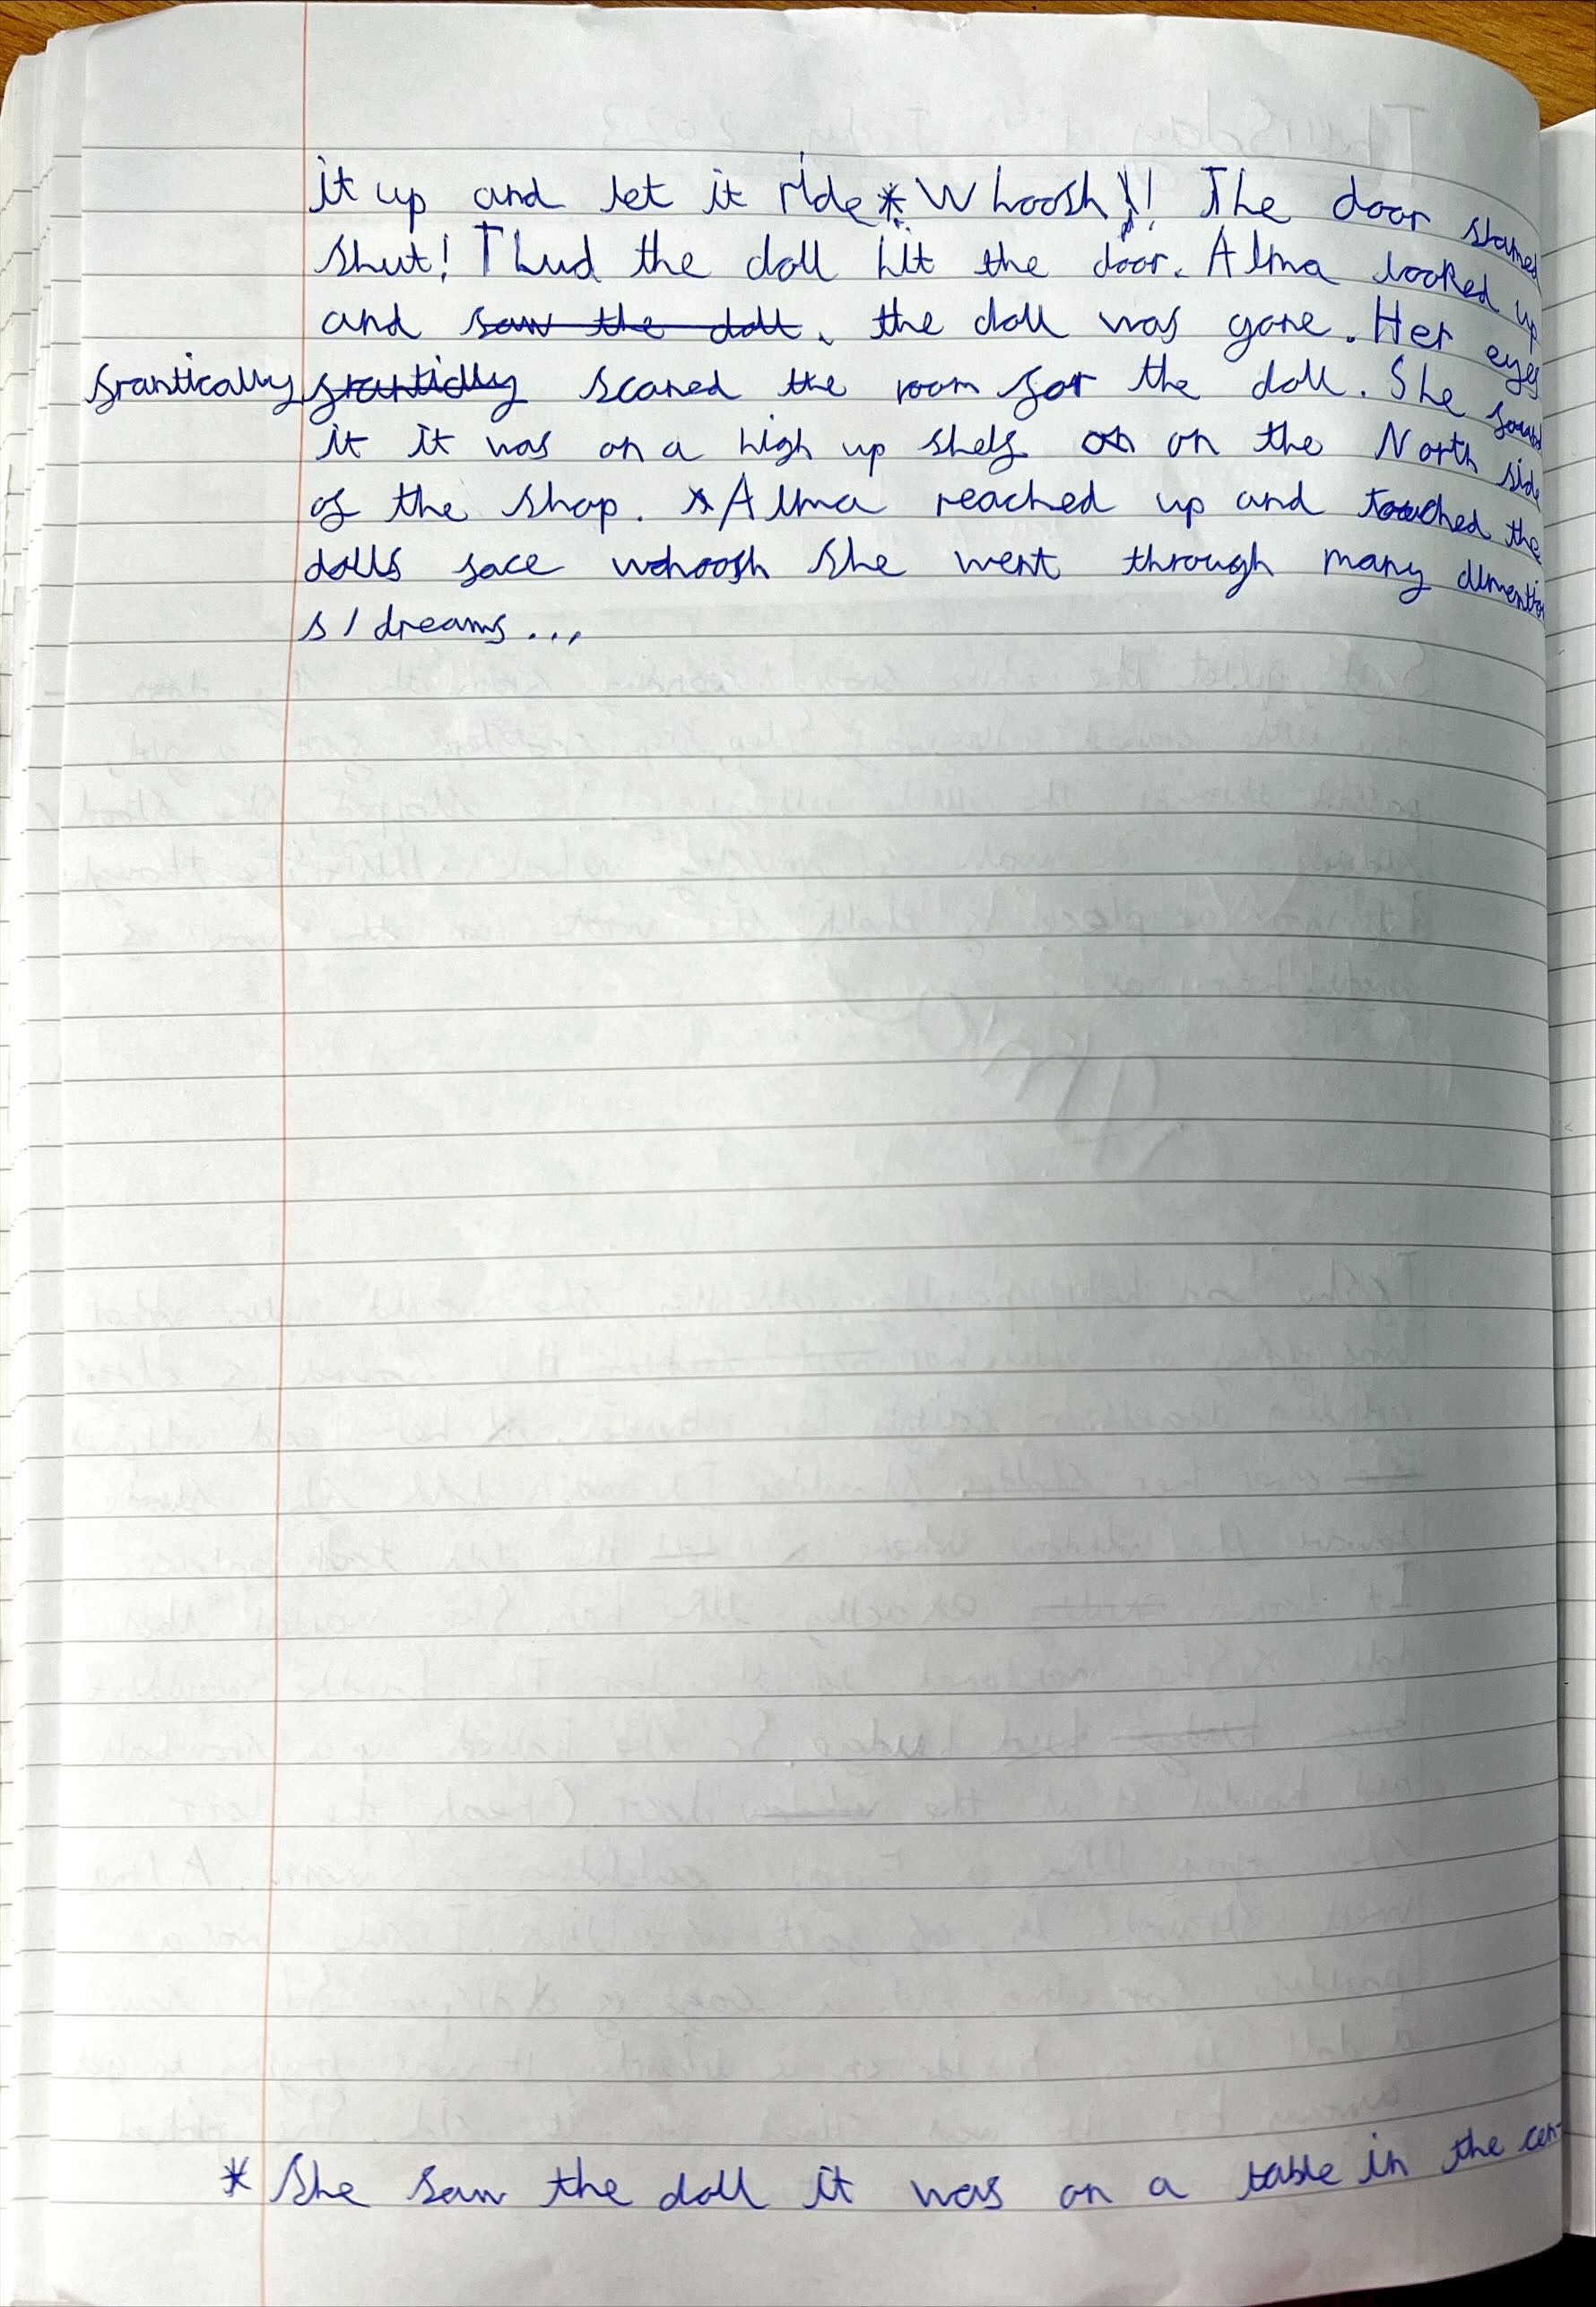 it up and let it ride * Whoosh!! The door slamed
shut! Thud the doll hit the door. Alma looked up
and saw the doll. the doll was gone. Her eyes
frantically frantidly scaned the room for the doll. She found
it it was on a high up shelf on on the North side
of the shop. Alma reached up and touched the
dolls face whoosh she went through many dimentio
s / dreams...
* She saw the doll it was on a table in the cen-